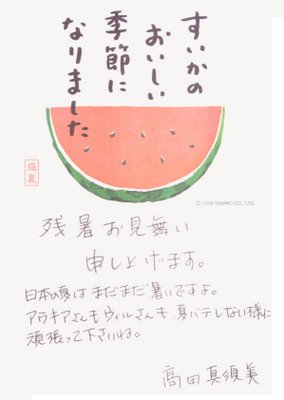 すいかの
おいしい
季節に
なりました
盛夏
© 2006 SANRIO CO., LTD.
残暑お見舞い
申し上げます。
日本の夏はまだまだ暑いですよ。
アラキアさんもウィルさんも、夏バテしない様に
頑張って下さいね。
高田真須美